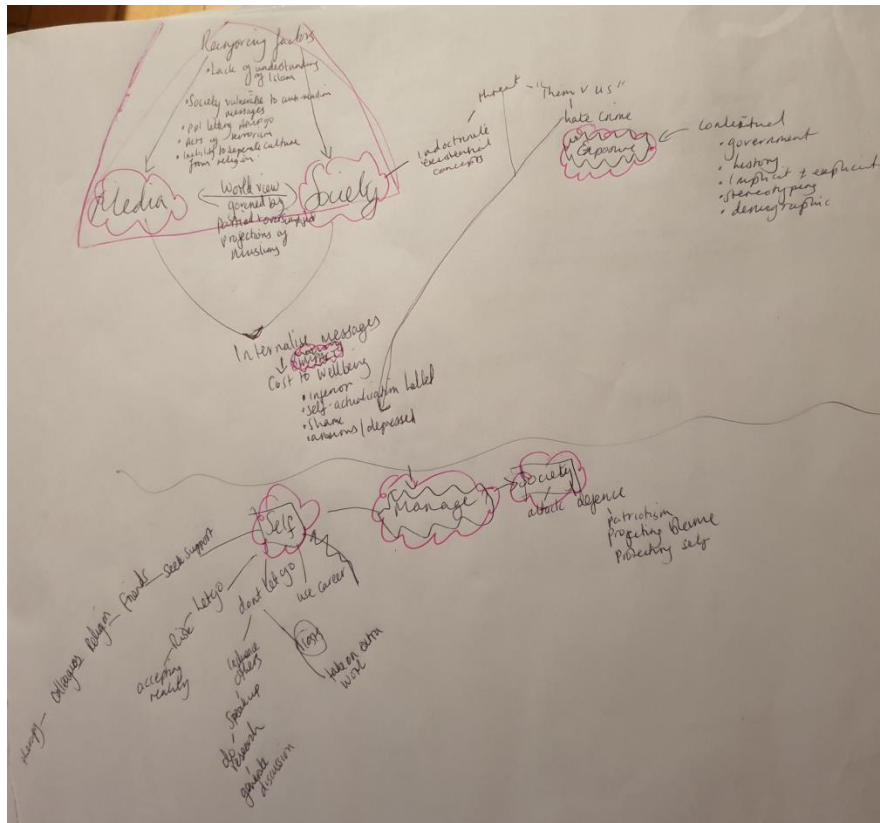 Reinforcing factors
• Lack of understanding
of Islam
• Society vulnerable to
messages
• ppl letting go
• Acts of terrorism
• Inability to separate culture
from religion.
Media
World view
governed by
partial
projections of
Muslims
Society
indoctrinate
existential
concepts
threat - "Them v us"
hate crime
Exposure
contextual
• government
• history
• implicit + explicit
• stereotyping
• demographic
Internalise messages
Cost to wellbeing
• inferior
• self-actualisation halted
• shame
• anxious/depressed
Self
Manage
Society
attack defence
patriotism
projecting blame
protecting self
Seek support
Friends
Religion
Colleagues
therapy
Let go
Risk
accepting
reality
dont let go
others
speak up
do
research
generate
discussion
use career
take on extra
work